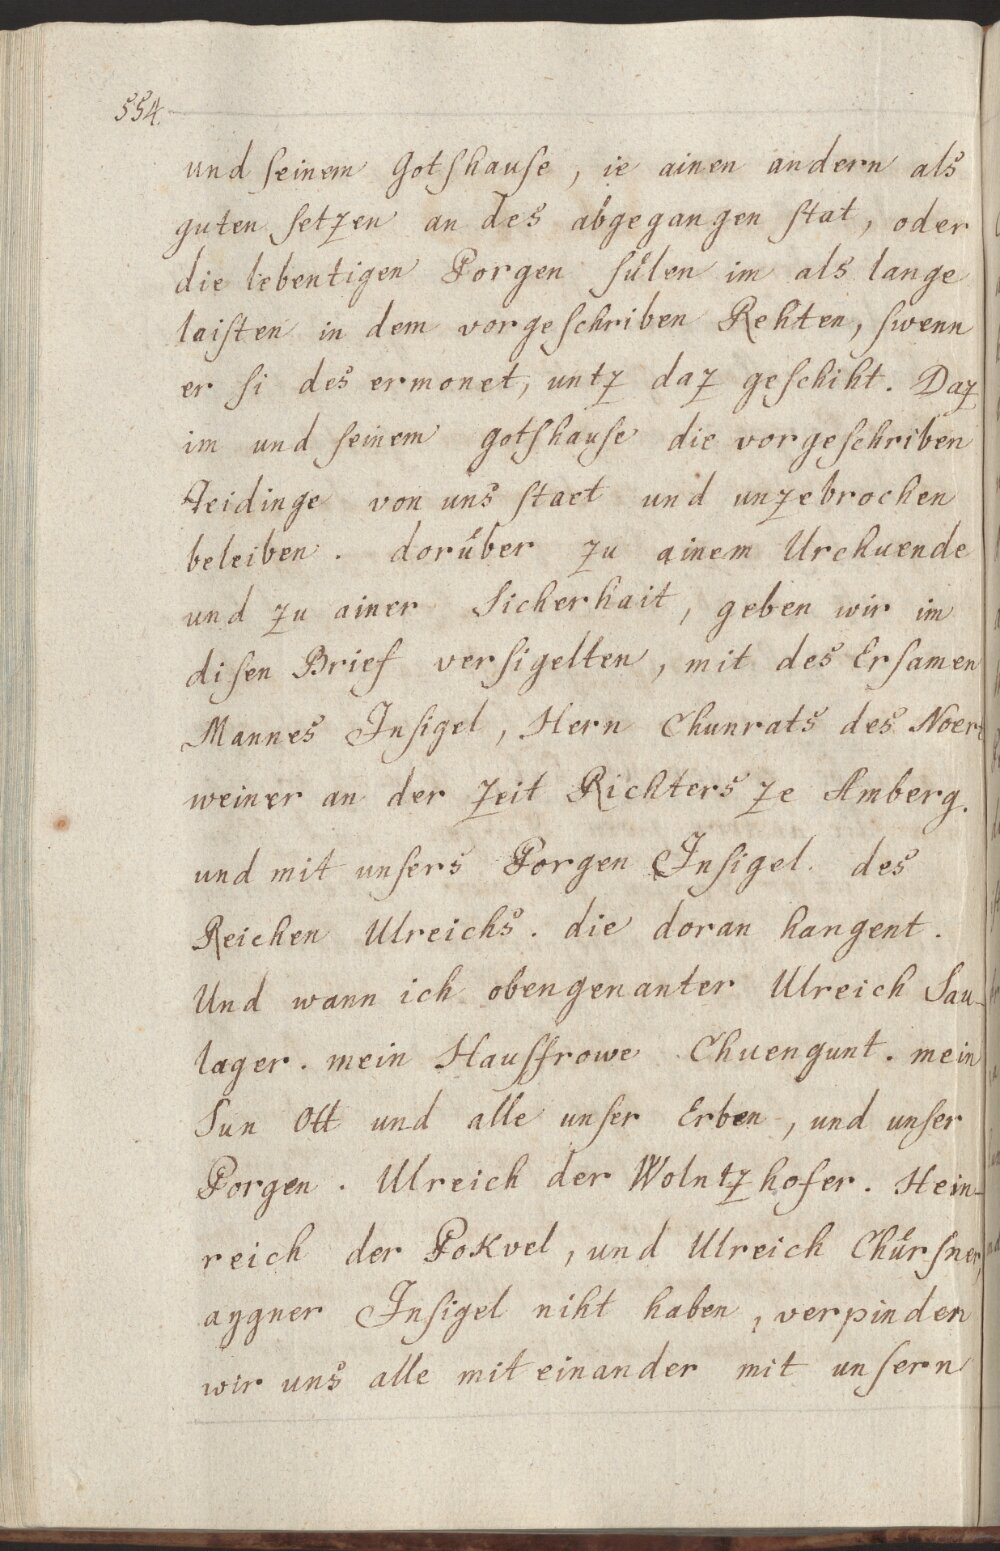 554.
und seinem Gotshause, ie ainen andern als
guten setzen an des abgegangen stat, oder
die lebentigen Porgen sůlen im als lange
laisten in dem vorgeschriben Rehten, swenn
er si des ermonet, untz daz geschiht. Daz
im und seinem gotshause die vorgeschriben
Teidinge von uns staet und unzebrochen
beleiben. dorůber zu ainem Urchuende
und zu ainer Sicherhait, geben wir im
disen Brief versigelten, mit des Ersamen
Mannes Insigel, Hern Chunrats des Noert
weiner an der Zeit Richters ze Amberg.
und mit unsers Porgen Insigel. des
Reichen Ulreichs. die doran hangent.
Und wann ich obengenanter Ulreich Sau-
lager. mein Hausfrowe Chuengunt. mein
Sun Ott und alle unser Erben, und unser
Porgen. Ulreich der Wolntzhofer. Hein-
reich der Pokvel, und Ulreich Chůrsner,
aygner Insigel niht haben, verpinden
wir uns alle mit einander mit unsern